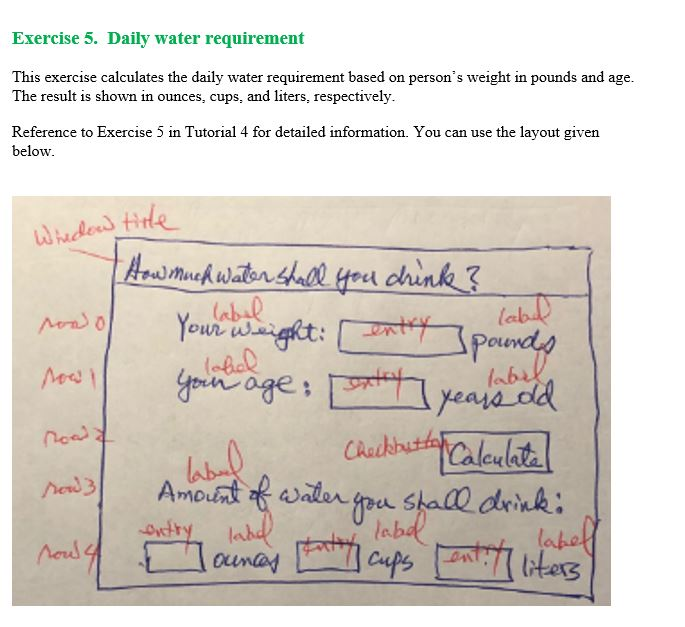 Exercise 5. Daily water requirement
This exercise calculates the daily water requirement based on person's weight in pounds and age.
The result is shown in ounces, cups, and liters, respectively.
Reference to Exercise 5 in Tutorial 4 for detailed information. You can use the layout given
below.
Window title
How much water shall you drink?
label label
row 0 Your weight: entry pounds
label label
row 1 your age: entry years old
row 2 Checkbutton Calculate
label
row 3 Amount of water you shall drink:
entry label label label
row 4 ounces entry cups entry liters